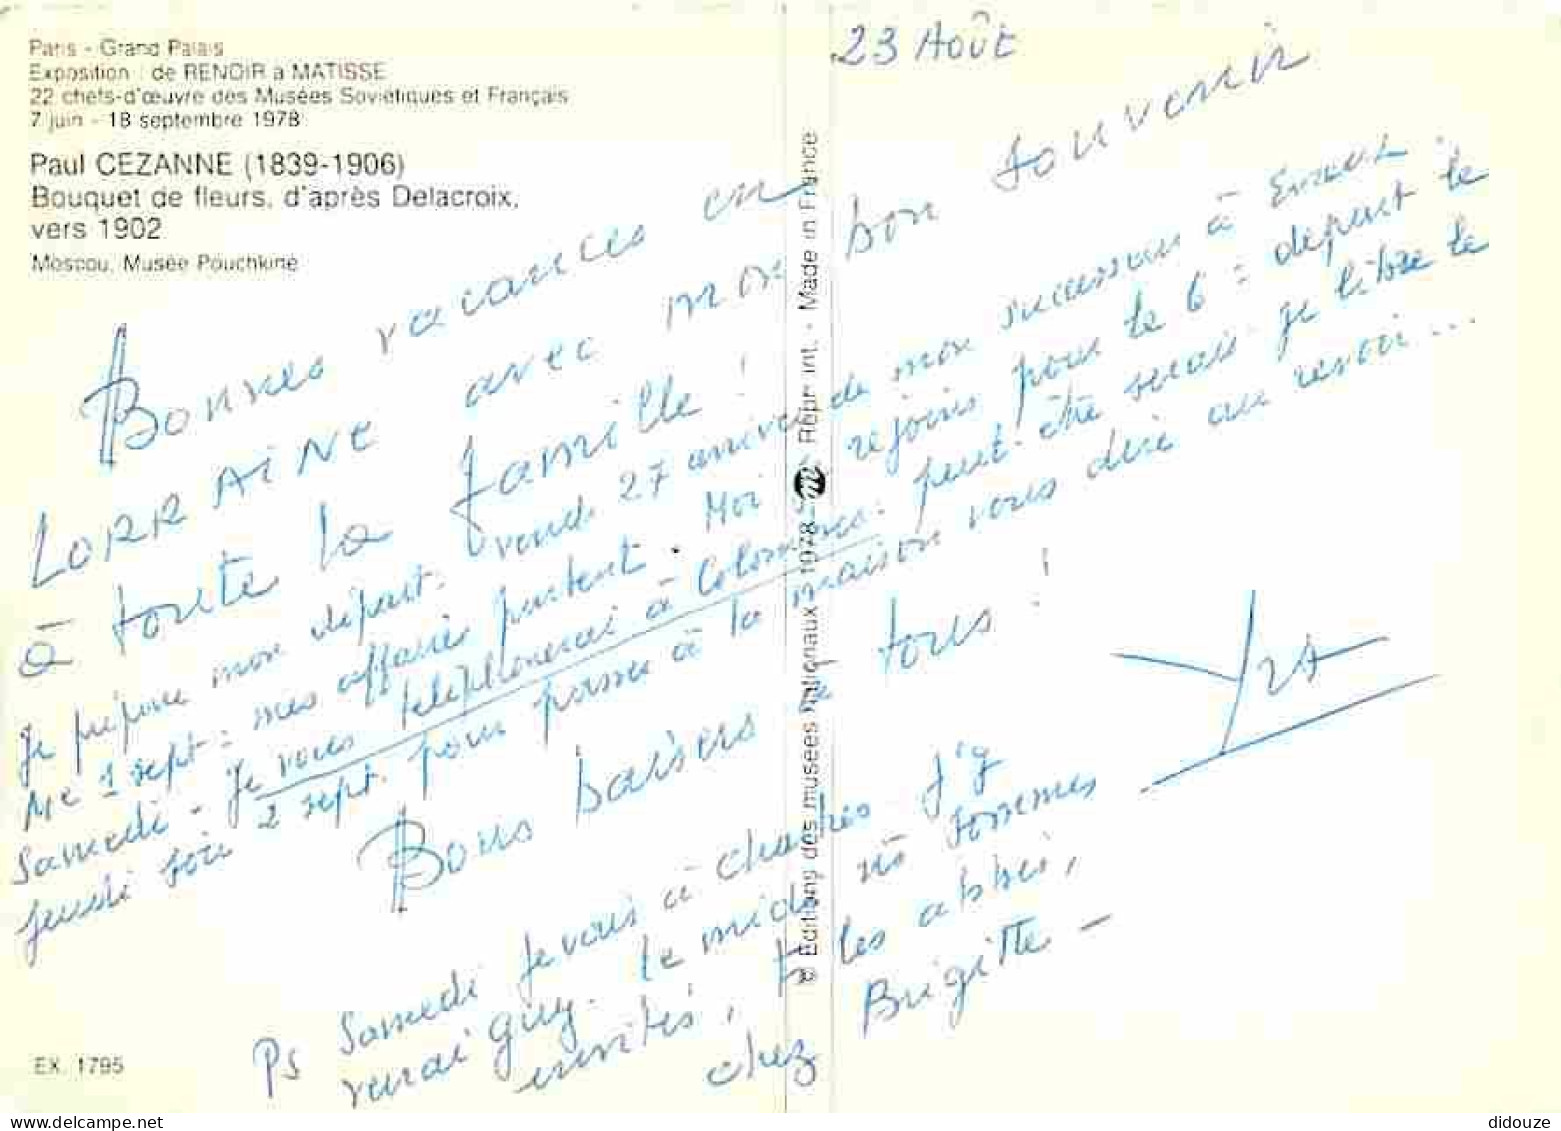 Paris - Grand Palais
Exposition : de RENOIR à MATISSE
22 chefs-d'œuvre des Musées Soviétiques et Français
7 juin - 18 septembre 1978
Paul CEZANNE (1839-1906)
Bouquet de fleurs, d'après Delacroix,
vers 1902
Moscou, Musée Pouchkine
23 Août
Bonnes vacances en
LORRAINE avec mon bon souvenir
à toute la famille !
Je prépare mon départ. vend. 27 arrivée de mon successeur à
Me 1 sept : mes affaires partent. Moi je rejoins pour le 6 : départ le
Samedi - Je vous téléphonerai à Colombes. peut-être serais je libre le
jeudi soir 2 sept. pour passer à la maison vous dire au revoir...
Bons baisers à tous !
Ps Samedi je vais à chartres j'y
verrai guy. le midi ns sommes
invités, ts les abbés,
chez Brigitte -
© Editions des musées nationaux - 1978 - m Repr. int. - Made in France
EX. 1795
delcampe.net
didouze